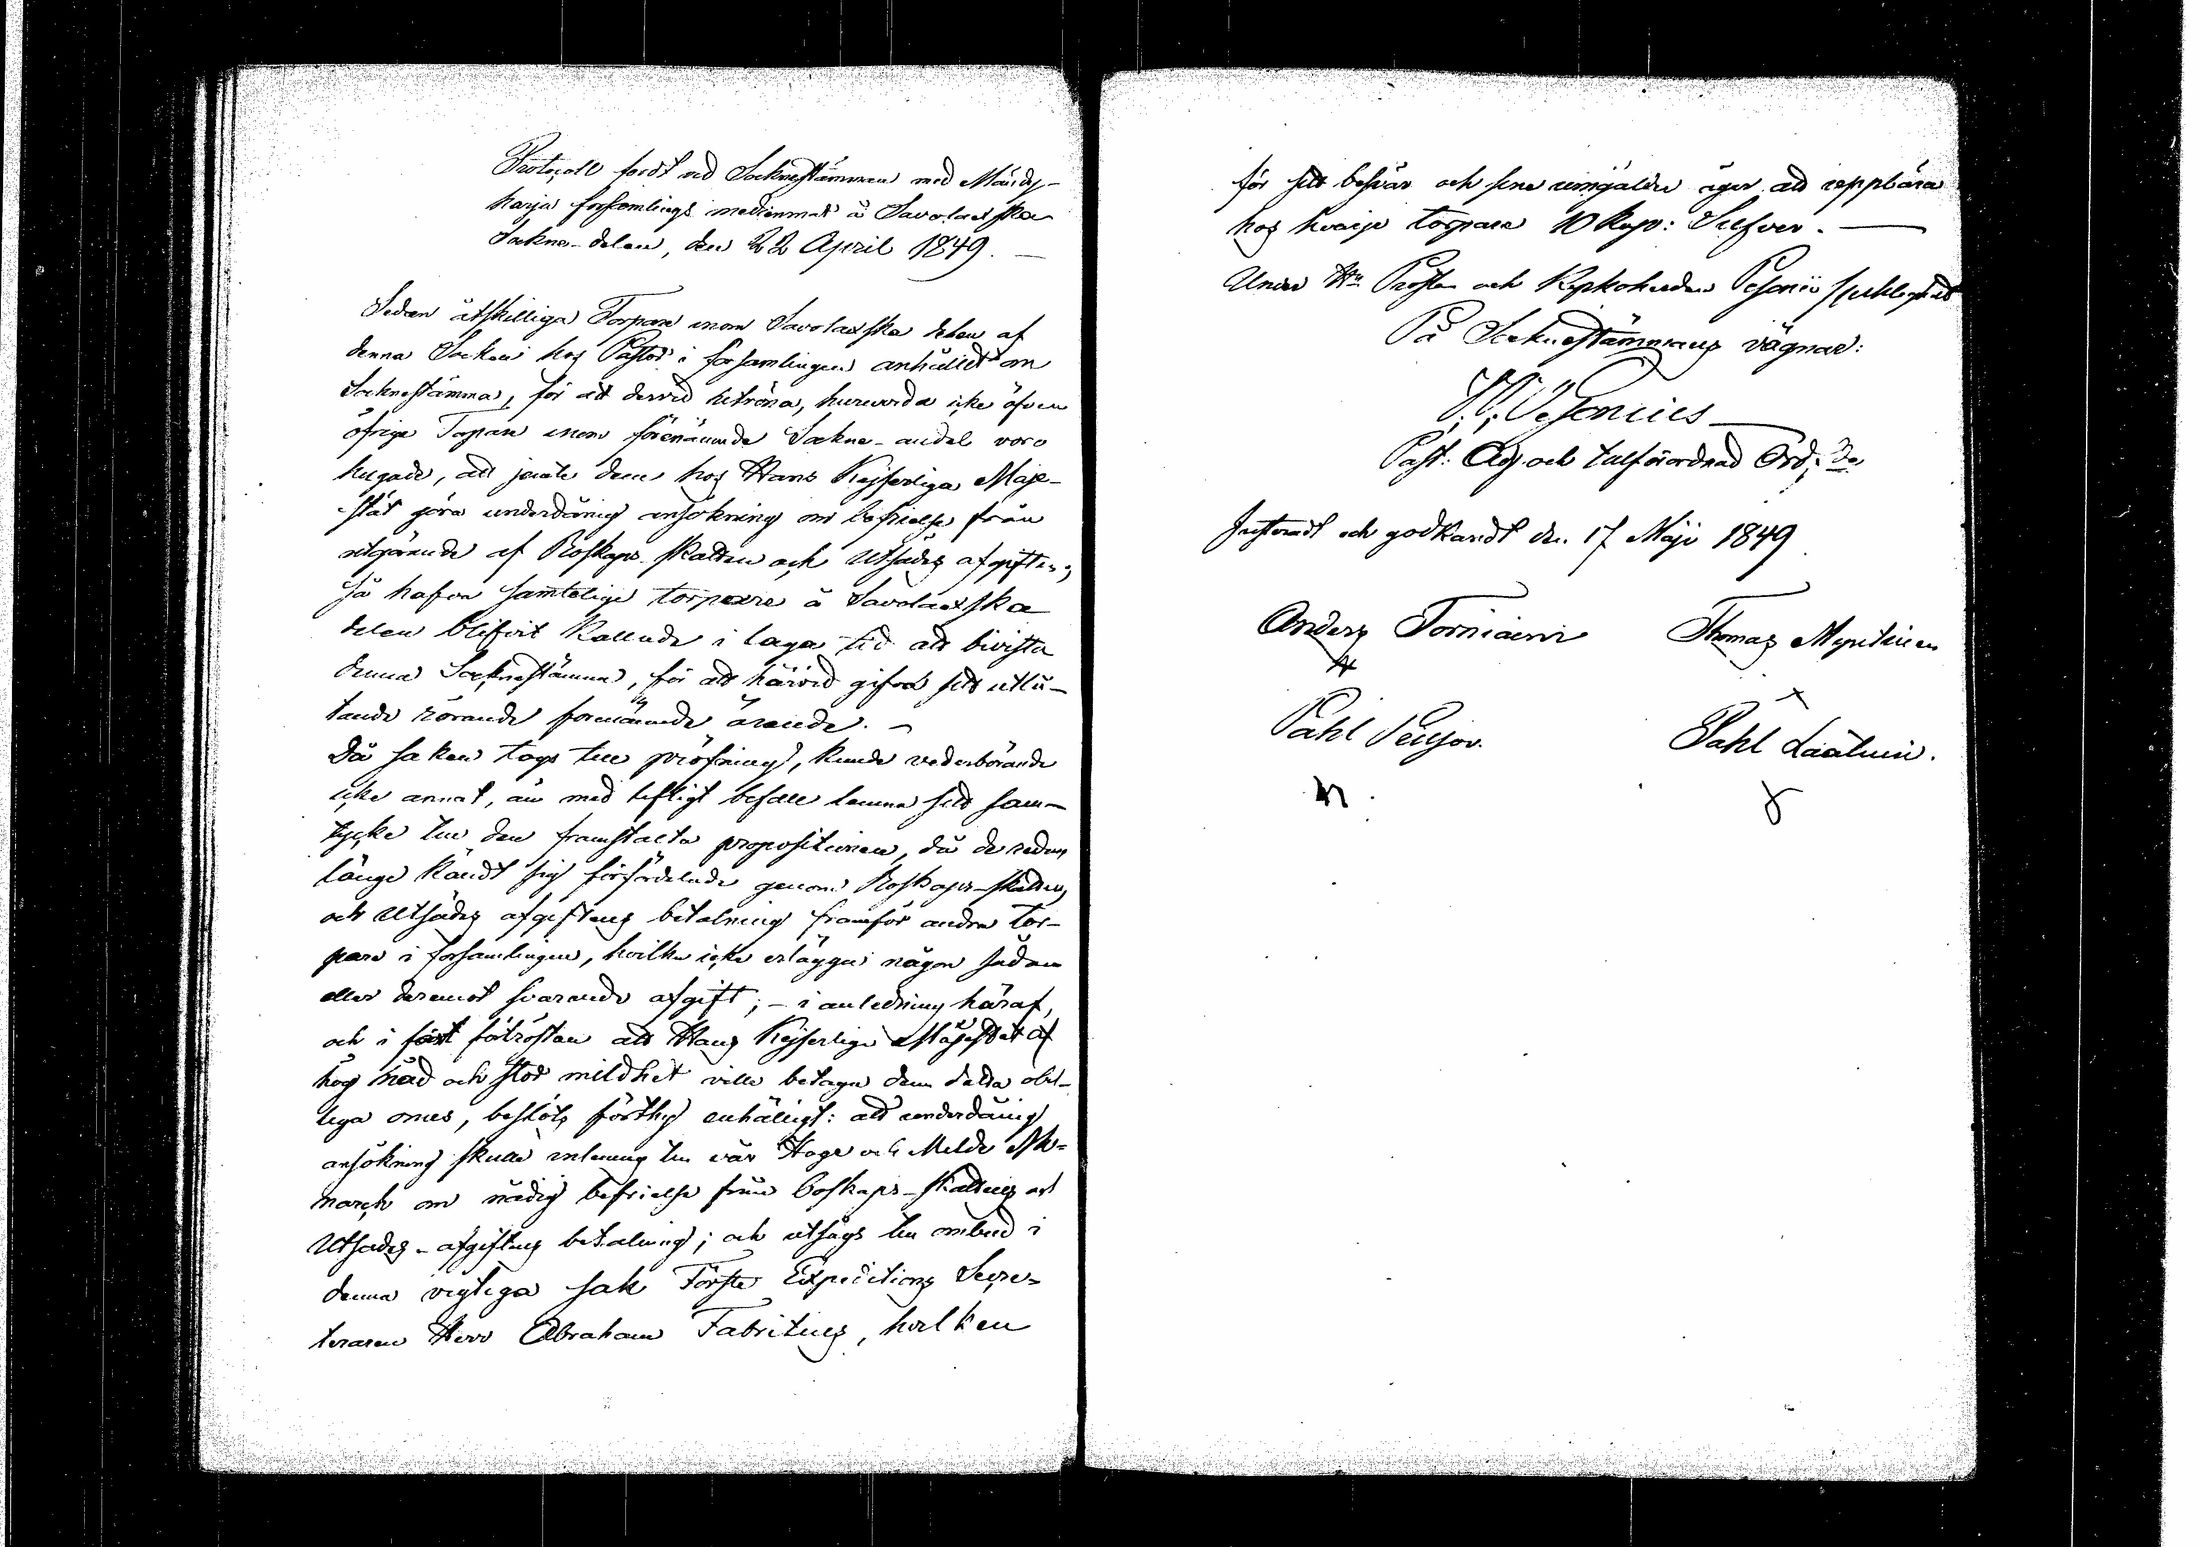 Protocoll fördt vid Sockneståmman med Mändy-
harja församlings medlemmar å Savolaxska
Sockne-delen, den 22 April 1849. —
Sedan åtskilliga Torpare inom Savolaxska delen af
denna Socken hos Pastor i församlingen anhållit om
Socknestämma, för att dervid utröna, huruvida icke äfven
öfrige Torpare inom förenämnde Sockne-andel voro
hugade, att jemte dem hos Hans Kejserliga Maje-
stät göra underdånig ansökning om befrielse från
utgörande af Boskaps-skatten och Utsädes afgiften;
så hafva samtelige torpare å Savolaxska
delen blifvit kallade i laga tid att bivista
denna Socknestämma, för att härvid gifva sitt utlå-
tande rörande förenämnde ärende. —
Då saken togs till pröfning, kunde vederbörande
icke annat, än med lifligt bifall lemna sitt sam-
tycke till den framstälta propositionen, då de redan
länge kändt sig förfördelade genom Boskaps-skattens
och Utsädes afgiftens betalning framför andra tor-
pare i församlingen, hvilka icke erlägga någon sådan
eller deremot svarande afgift; – i anledning häraf,
och i fast förtröstan att Hans Kejserliga Majestät af
hög nåd och stor mildhet ville betaga dem detta obil-
liga onus, beslöts förthy enhälligt: att underdånig
ansökning skulle inlemnas till vår Höge och Milde Mo-
narch om nådig befrielse från boskaps-skattens och
Utsädes-afgiftens betalning; och utsågs till ombud i
denna vigtiga sak Förste Expeditions Secre-
teraren Herr Abraham Fabritius, hvilken
för sitt besvär och sina umgälder äger att uppbära
hos hvarje torpare 10 Kop: Silfver. —
Under Hr Prosten och Kyrkoherden Pesonii
På Socknestämmans vägnar:
Pesonius
Past: Adj och tillförordnad Ordf:de
Justeradt och godkändt den 17 Maji 1849
Anders Torniainen Thomas Myntinen
Påhl Pensar. Påhl Läätinen.